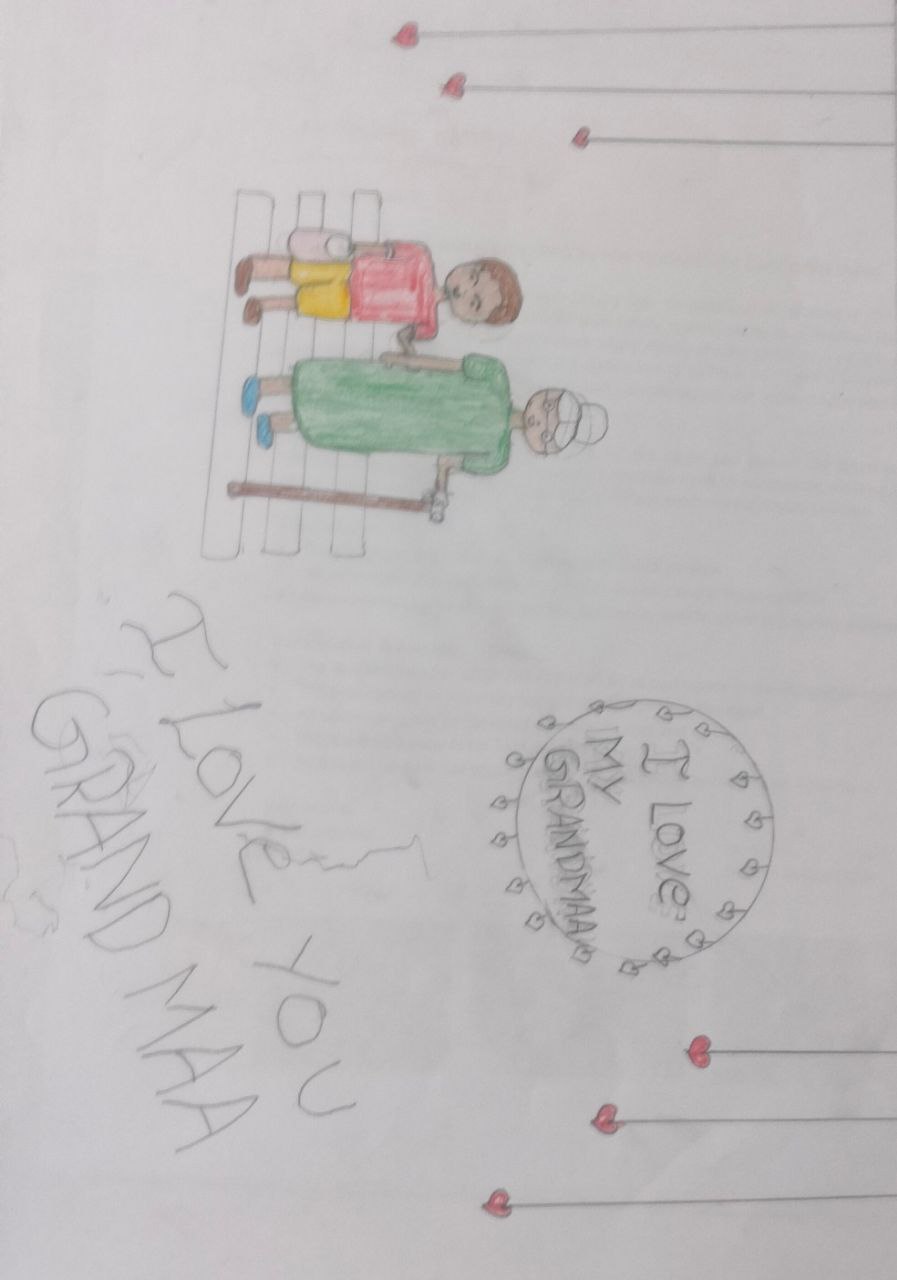 I Love
MY
GRANDMAA
I Love You
GRAND MAA